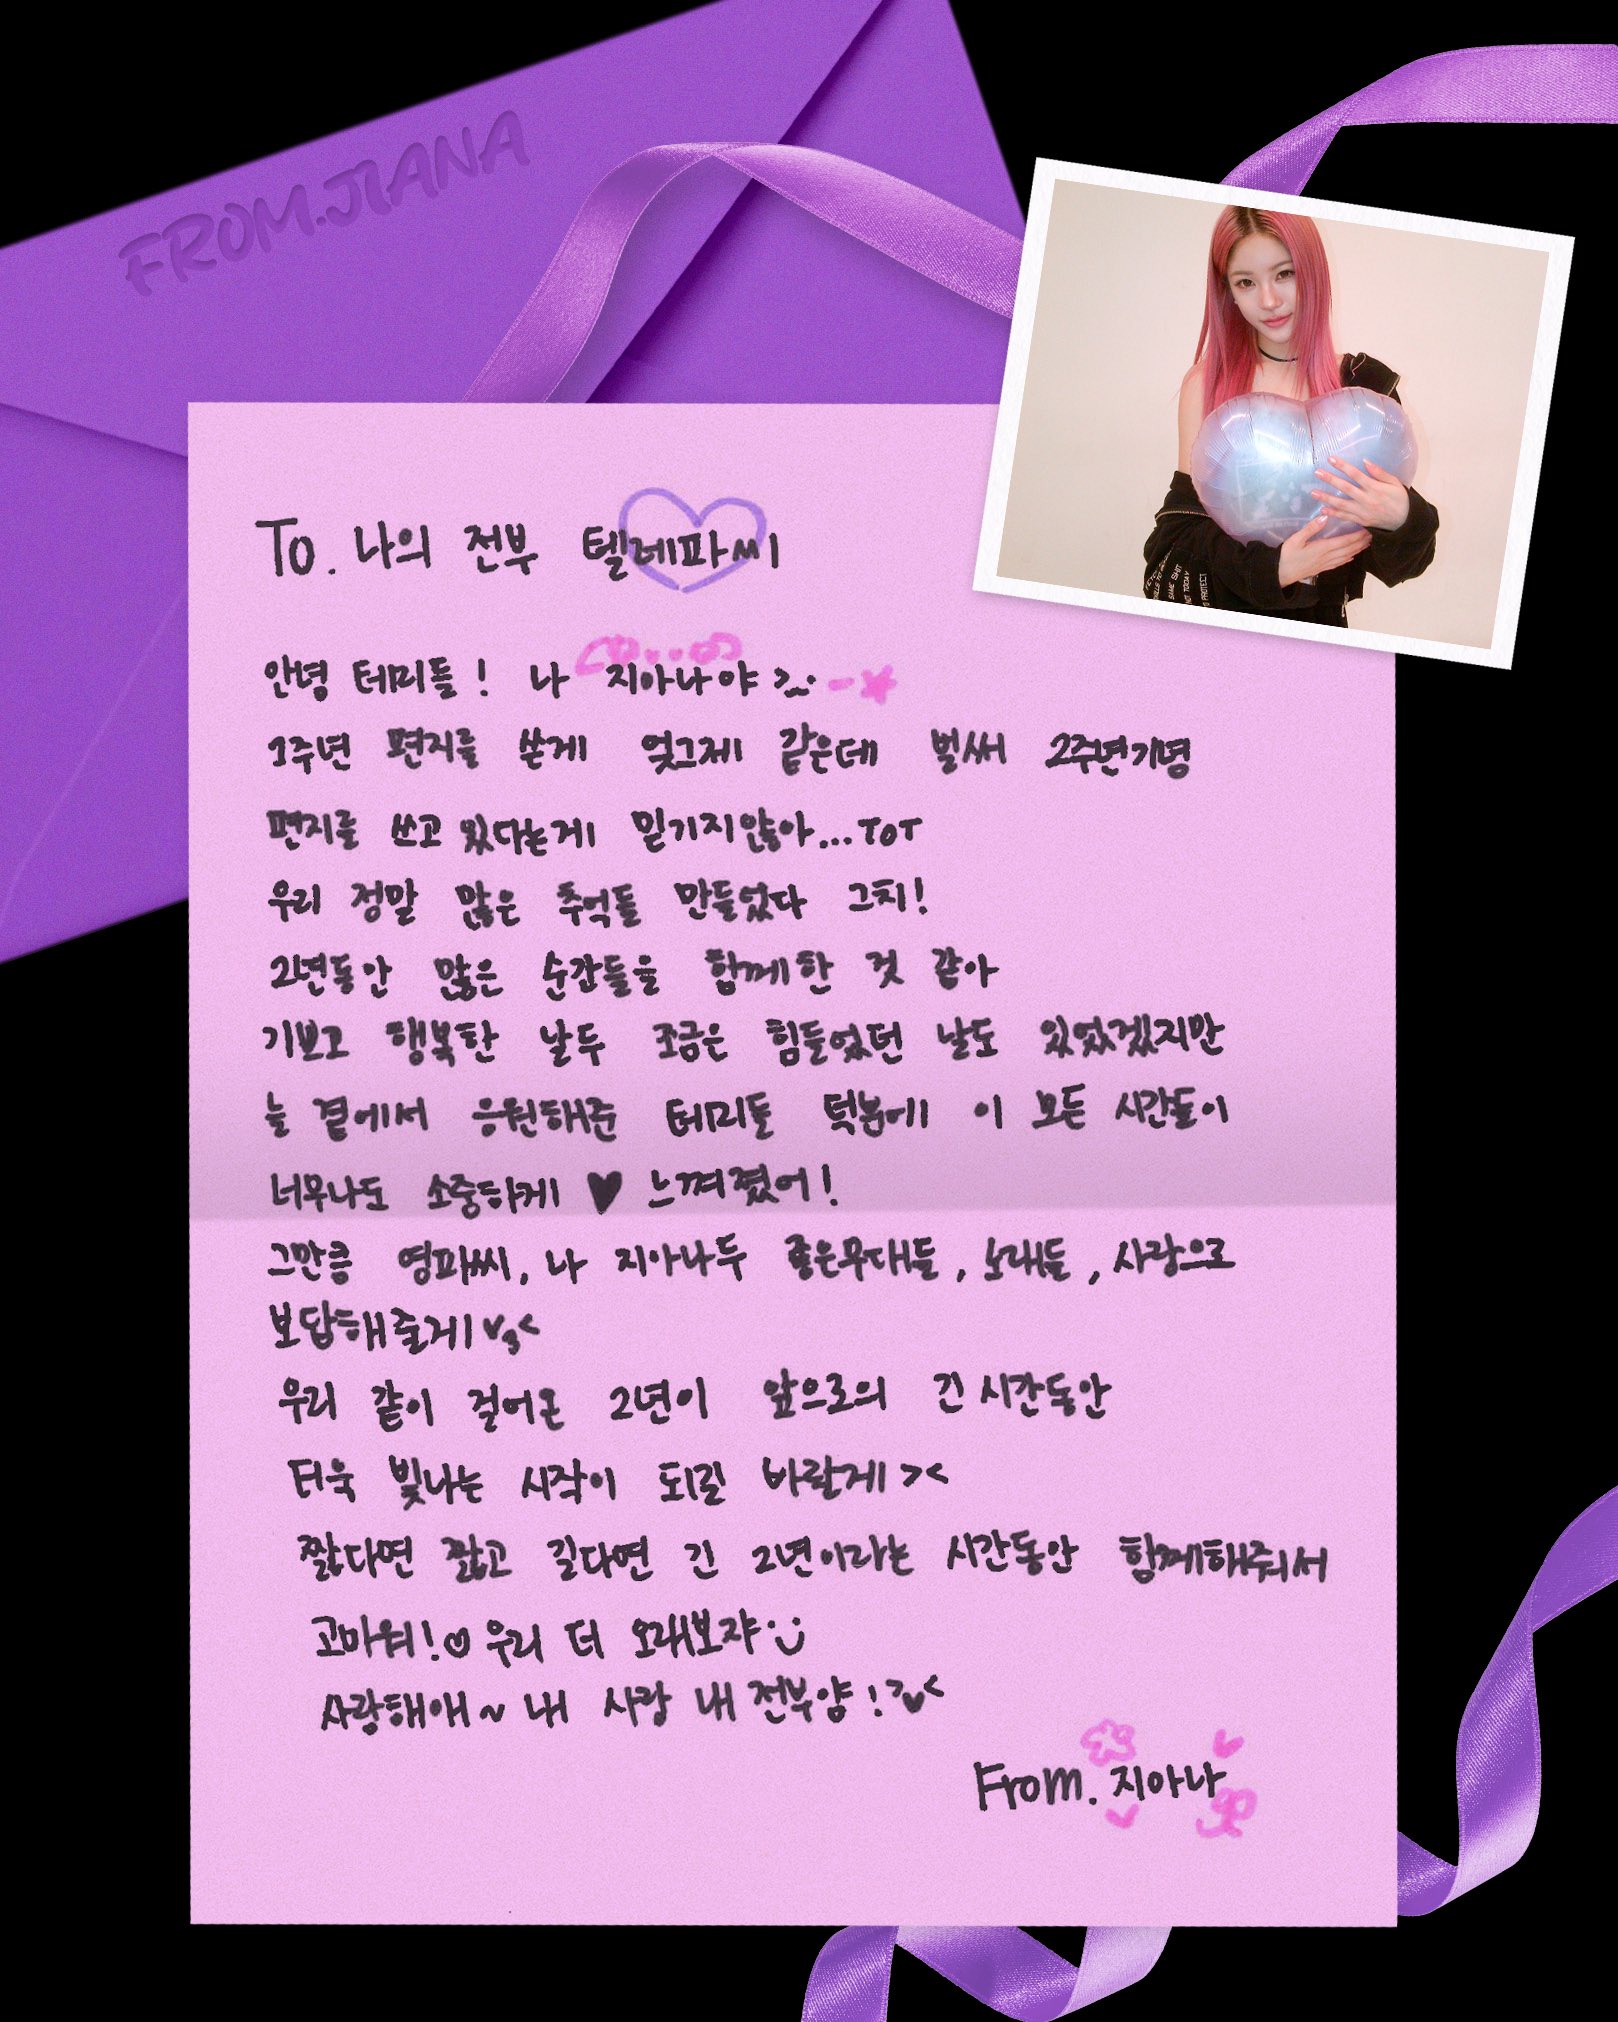 FROM.JIANA
To. 나의 전부 텔레파씨
안녕 테미들! 나 지아나야
1주년 편지를 쓴게 엊그제 같은데 벌써 2주년기념
편지를 쓰고 있다는게 믿기지않아...ToT
우리 정말 많은 추억들 만들었다 그치!
2년동안 많은 순간들을 함께한 것 같아
기쁘고 행복한 날두 조금은 힘들었던 날도 있었겠지만
늘 곁에서 응원해준 테미들 덕분에 이 모든 시간들이
너무나도 소중하게 ♥ 느껴졌어!
그만큼 영파씨, 나 지아나두 좋은무대들, 노래들, 사랑으로
보답해줄게
우리 같이 걸어온 2년이 앞으로의 긴 시간동안
더욱 빛나는 시작이 되길 바랄게 ><
짧다면 짧고 길다면 긴 2년이라는 시간동안 함께해줘서
고마워!♡ 우리 더 오래보쟈
사랑해애~ 내 사랑 내 전부얌!
From. 지아나
SAME SHIT
NOT TODAY
PROTECT